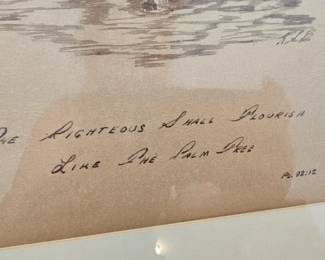 The Righteous Shall Flourish
Like The Palm Tree
Ps. 92:12